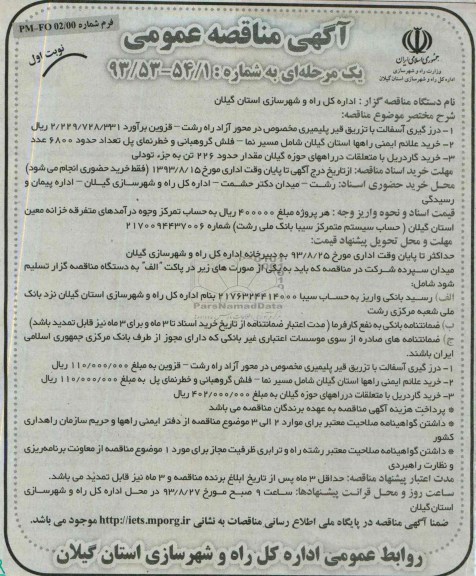 فرم شماره PM-FO 02/00
نوبت اول
جمهوری اسلامی ایران
وزارت راه و شهرسازی
اداره کل راه و شهرسازی استان گیلان
آگهی مناقصه عمومی
یک مرحله‌ای به شماره : ۵۴/۱-۵۳-۹۳
نام دستگاه مناقصه گزار : اداره کل راه و شهرسازی استان گیلان
شرح مختصر موضوع مناقصه:
۱- درز گیری آسفالت با تزریق قیر پلیمیری مخصوص در محور آزاد راه رشت - قزوین برآورد ۲/۲۲۹/۷۲۸/۳۳۱ ریال
۲- خرید علائم ایمنی راهها استان گیلان شامل مسیر نما - فلش گروهبانی و خطرنمای پل تعداد حدود ۶۸۰۰ عدد
۳- خرید گاردریل با متعلقات درراههای حوزه گیلان مقدار حدود ۲۲۶ تن به جزء دوتلی
مهلت خرید اسناد مناقصه: ازتاریخ درج آگهی تا پایان وقت اداری مورخ ۱۳۹۳/۸/۱۵ (فقط خرید حضوری انجام می شود)
محل خرید حضوری اسناد: رشت - میدان دکتر حشمت - اداره کل راه و شهرسازی گیلان - اداره پیمان و
رسیدگی
قیمت اسناد و نحوه واریز وجه : هر پروژه مبلغ ۴۰۰۰۰۰ ریال به حساب تمرکز وجوه درآمدهای متفرقه خزانه معین
استان گیلان ( حساب سیستم متمرکز سیبا بانک ملی رشت) شماره ۲۱۷۰۰۹۴۴۳۷۰۰۶
مهلت و محل تحویل پیشنهاد قیمت:
حداکثر تا پایان وقت اداری مورخ ۹۳/۸/۲۵ به دبیرخانه اداره کل راه و شهرسازی گیلان
میدان سپرده شرکت در مناقصه که باید به یکی از صورت های زیر در پاکت "الف" به دستگاه مناقصه گزار تسلیم
شود شامل:
الف) رسید بانکی واریز به حساب سیبا ۲۱۷۶۳۲۴۴۱۴۰۰۰ بنام اداره کل راه و شهرسازی استان گیلان نزد بانک
ملی شعبه مرکزی رشت
ب) ضمانتنامه بانکی به نفع کارفرما (مدت اعتبار ضمانتنامه از تاریخ خرید اسناد تا ۳ ماه و برای ۳ ماه نیز قابل تمدید باشد)
ج) ضمانتنامه های صادره از سوی موسسات اعتباری غیر بانکی که دارای مجوز از طرف بانک مرکزی جمهوری اسلامی
ایران باشند.
۱- درز گیری آسفالت با تزریق قیر پلیمیری مخصوص در محور آزاد راه رشت - قزوین به مبلغ ۱۱۰/۰۰۰/۰۰۰ ریال
۲- خرید علائم ایمنی راهها استان گیلان شامل مسیر نما - فلش گروهبانی و خطرنمای پل به مبلغ ۱۱۰/۰۰۰/۰۰۰ ریال
۳- خرید گاردریل با متعلقات درراههای حوزه گیلان به مبلغ ۴۰۲/۰۰۰/۰۰۰ ریال
* پرداخت هزینه آگهی مناقصه به عهده برندگان مناقصه می باشد
* داشتن گواهینامه صلاحیت معتبر برای موارد ۲ الی ۳ موضوع مناقصه از دفتر ایمنی راهها و حریم سازمان راهداری
کشور
* داشتن گواهینامه صلاحیت معتبر رشته راه و ترابری ظرفیت مجاز برای مورد ۱ موضوع مناقصه از معاونت برنامه‌ریزی
و نظارت راهبردی
مدت اعتبار پیشنهاد مناقصه: حداقل ۳ ماه پس از تاریخ ابلاغ برنده مناقصه و ۳ ماه نیز قابل تمدید می باشد.
ساعت روز و محل قرائت پیشنهادها: ساعت ۹ صبح مورخ ۹۳/۸/۲۷ در محل اداره کل راه و شهرسازی
استان گیلان
ضمنا آگهی مناقصه در پایگاه ملی اطلاع رسانی مناقصات به نشانی http://iets.mporg.ir موجود می باشد.
روابط عمومی اداره کل راه و شهرسازی استان گیلان
ParsNamadData